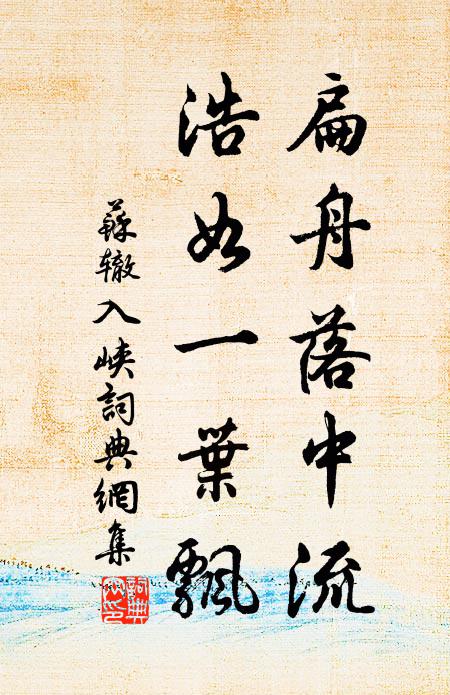 扁舟落中流
浩如一葉飄
蘇轍入峽詞典網集